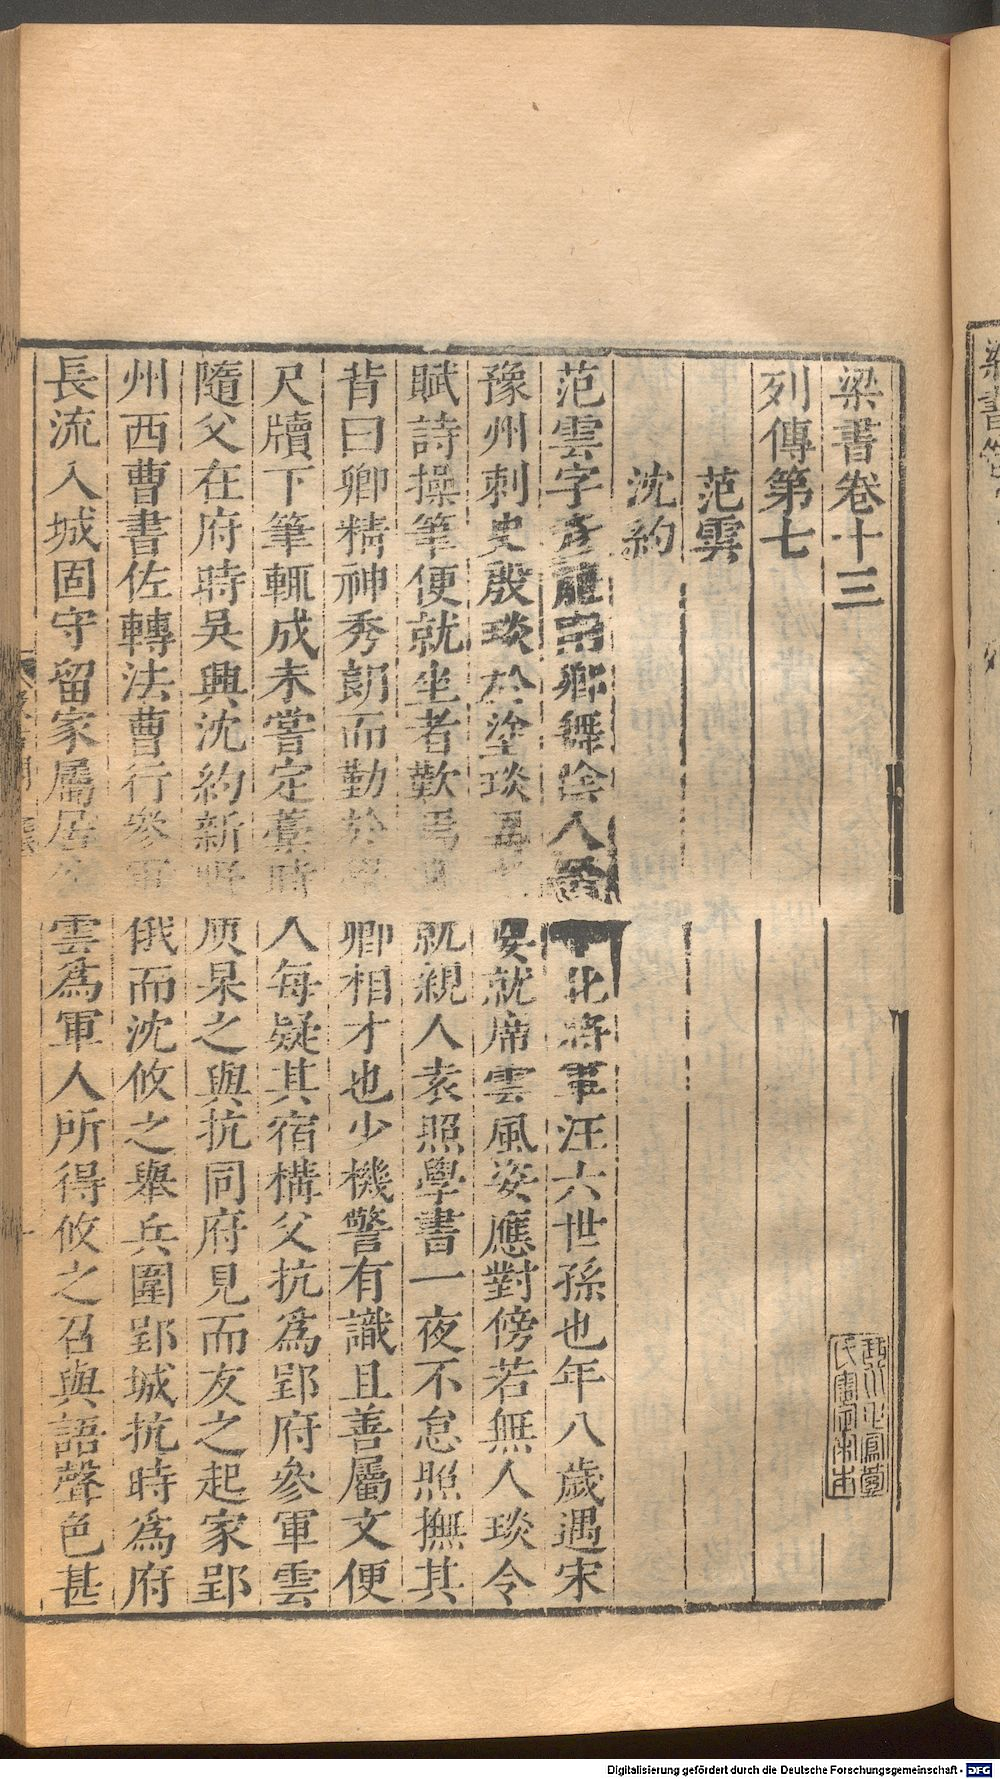 梁書卷十三
列傳第七
范雲
沈約
范雲字彥龍南鄉舞陰人晉平北將軍汪六世孫也年八歲遇宋
豫州刺史殷琰於塗琰異安就席雲風姿應對傍若無人琰令
賦詩操筆便就坐者歎焉就親人袁照學書一夜不怠照撫其
背曰卿精神秀朗而勤於卿相才也少機警有識且善屬文便
尺牘下筆輒成未嘗定藁時人每疑其宿構父抗爲郢府參軍雲
隨父在府時吳興沈約新野庾杲之與抗同府見而友之起家郢
州西曹書佐轉法曹行參軍俄而沈攸之舉兵圍郢城抗時爲府
長流入城固守留家屬居外雲爲軍人所得攸之召與語聲色甚
Digitalisierung gefördert durch die Deutsche Forschungsgemeinschaft - DFG